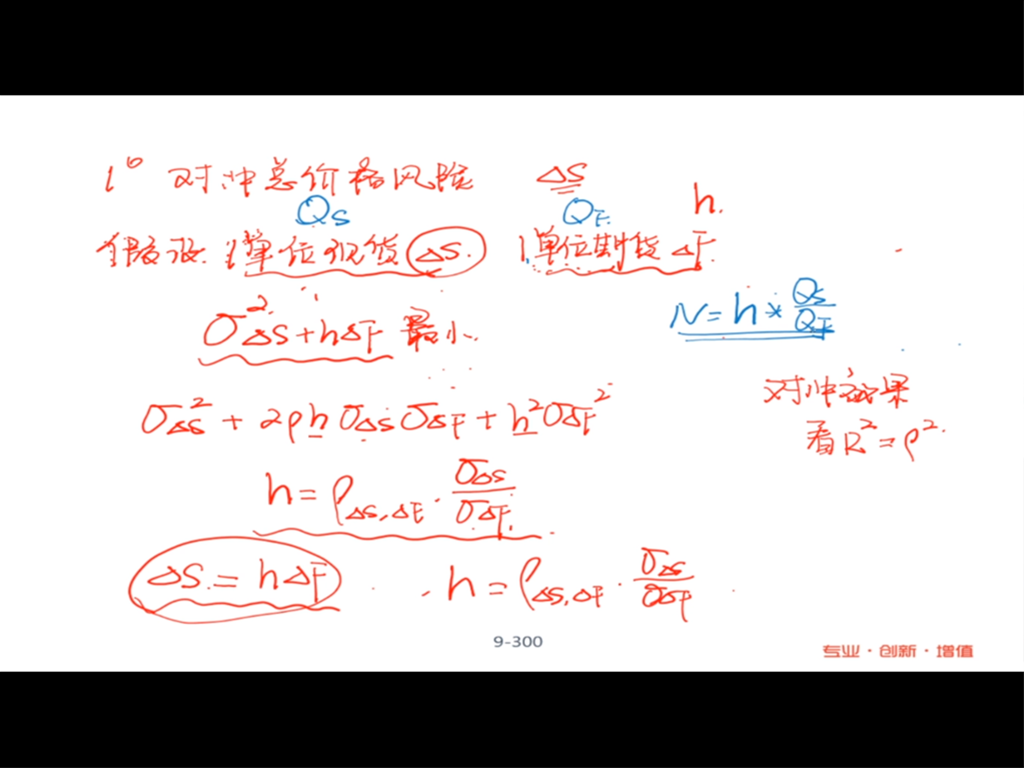 1° 对冲总价格风险 ΔS
h.
Q_S Q_F.
假设: 1单位现货 ΔS. 1单位期货 ΔF
N = h * Q_S/Q_F
σ²_{ΔS+hΔF} 最小.
对冲效果
看 R² = ρ².
σ_{ΔS}² + 2ρhσ_{ΔS}σ_{ΔF} + h²σ_{ΔF}²
h = ρ_{ΔS,ΔF} · σ_{ΔS}/σ_{ΔF}.
ΔS = hΔF h = ρ_{ΔS,ΔF} · σ_{ΔS}/σ_{ΔF}
9-300
专业·创新·增值